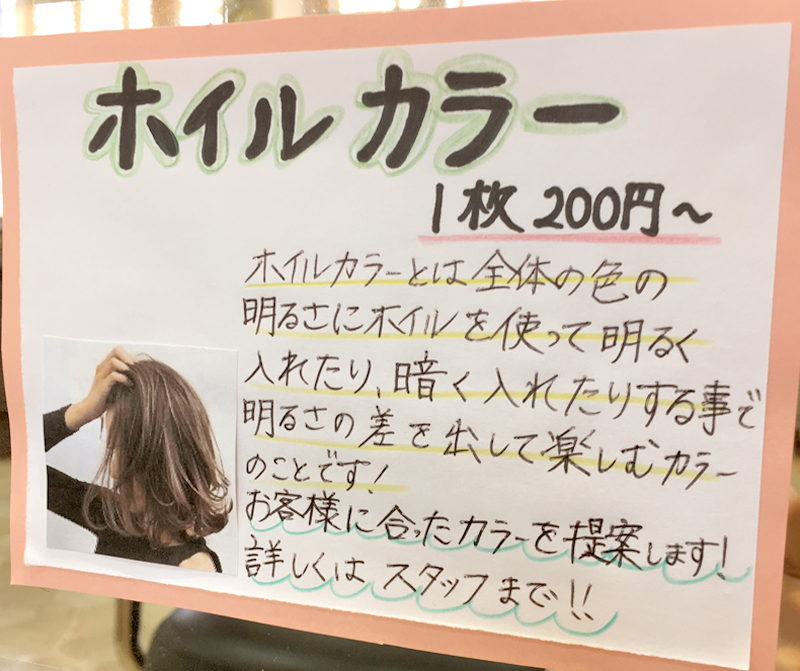 ホイルカラー
1枚 200円～
ホイルカラーとは全体の色の
明るさにホイルを使って明るく
入れたり、暗く入れたりする事で
明るさの差を出して楽しむカラー
のことです!
お客様に合ったカラーを提案します!
詳しくはスタッフまで!!